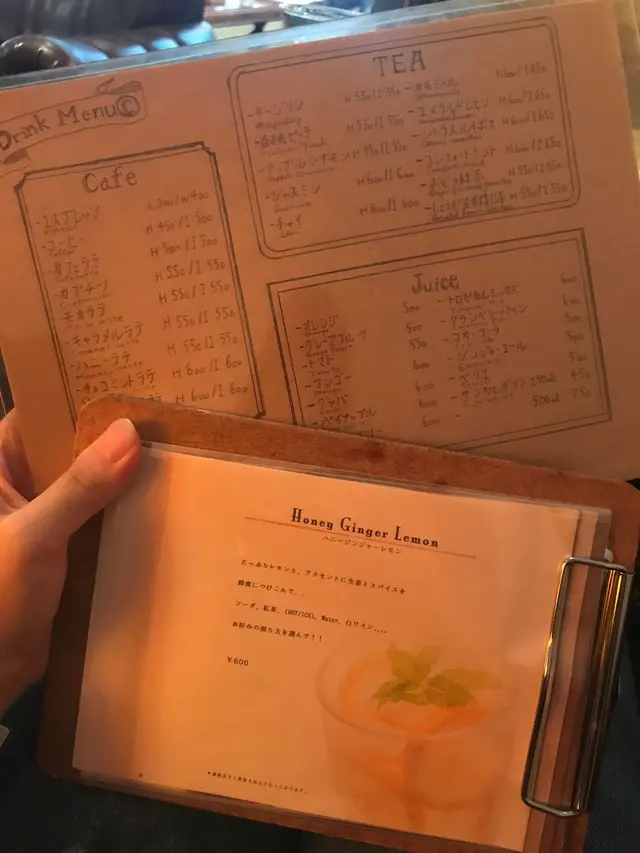 Drink Menu
Cafe
-エスプレッソ S 300/W 400
-コーヒー H 450/I 500
-カフェラテ H 500/I 500
-カプチーノ H 550/I 550
-モカラテ H 550/I 550
-キャラメルラテ H 550/I 550
-ハニーラテ H 550/I 550
-チョコミントラテ H 600/I 600
H 600/I 600
TEA
-ダージリン H 550/I 550
-白桃ピーチ H 550/I 550
-アップルシナモン H 550/I 550
-ジャスミン H 600/I 600
-チャイ H 600/I 600
-カモミール H 600/I 650
-エメラルドレモン H 600/I 650
-シトラスルイボス H 600/I 650
-コンフォートミント H 600/I 650
H 550/I 550
H 550/I 550
Juice
-オレンジ 500
-グレープフルーツ 500
-トマト 550
-マンゴー 600
-グァバ 600
-パイナップル 600
-トロピカルミックス 600
-クランベリー 600
-コカ・コーラ 500
-ジンジャーエール 500
-ペリエ 500
-サンペレグリノ 250ml 450
500ml 850
Honey Ginger Lemon
ハニージンジャーレモン
たっぷりレモンと、アクセントに生姜とスパイスを
蜂蜜につけこんで、、
ソーダ、紅茶、(HOT/ICE)、Water、白ワイン....
お好みの割り方を選んで！！
¥600